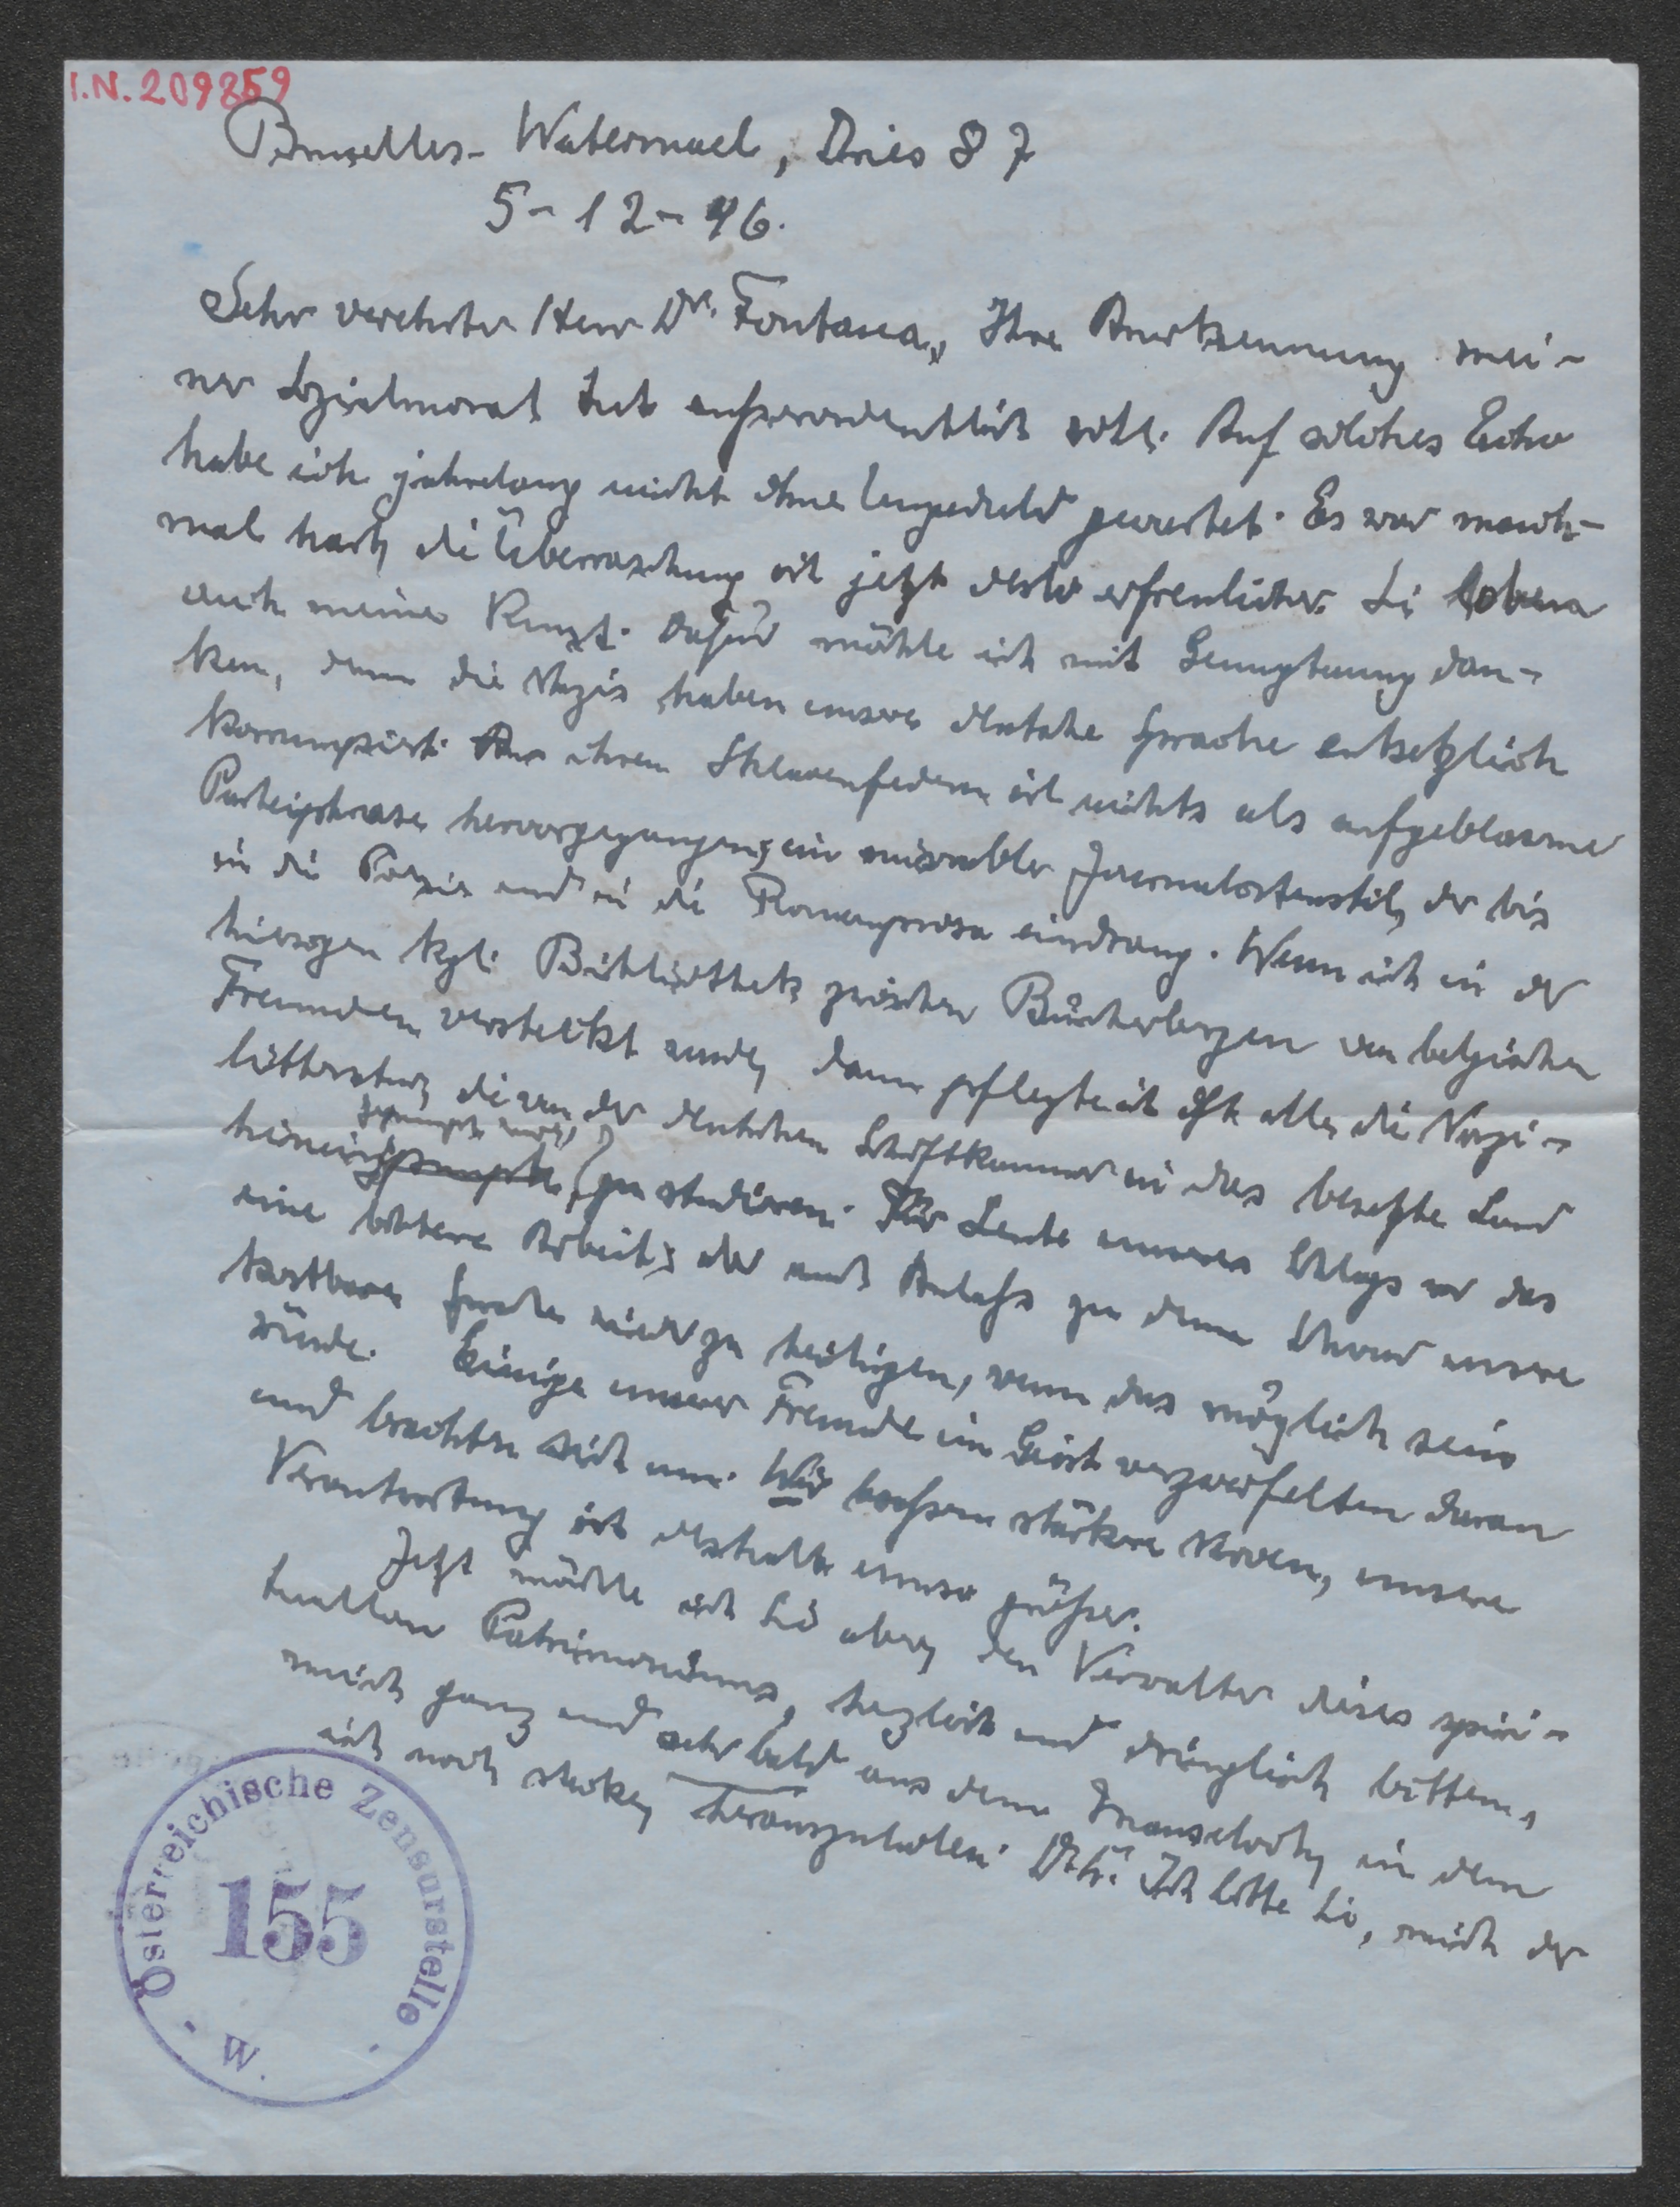 I.N. 209859
Bruxelles-Watermael, Dries 87
5-12-46.
Sehr verehrter Herr Dr. Fontana, Ihre Anerkennung mei-
ner Sozialmoral tut außerordentlich wohl. Auf solches Echo
habe ich jahrelang nicht ohne Ungeduld gewartet. Es war manch-
mal hart, die Überraschung ist jetzt desto erfreulicher. Sie loben
auch meine Kunst. Dafür möchte ich mit Genugtuung dan-
ken, denn die Nazis haben unsere deutsche Sprache entsetzlich
korrumpiert. Aus ihren Sklavenfedern ist nichts als aufgeblasene
Parteiphrase hervorgegangen, ein miserabler Journalistenstil, der bis
in die Poesie und in die Romanprosa eindrang. Wenn ich in der
hiesigen kgl. Bibliothek zwischen Bücherbergen von belgischen
Freunden versteckt wurde, dann pflegte ich oft alle, die Nazi-
litteratur, die von der deutschen Schrifttkammer in das besetzte Land
hineingepumpt wurde, zu studieren. Für Leute unseres Schlags war das
eine bittere Arbeit, aber auch Anlass zu dem Schwur unsere
kostbare Sprache wieder zu heiligen, wenn das möglich sein
würde. Einige unserer Freunde im Geist verzweifelten daran
und brachten sich um. Wir besassen stärkere Nerven, unsere
Verantwortung ist deshalb umso größer.
Jetzt möchte ich Sie aber, den Verwalter dieses spiri-
tuellen Patrimoniums, herzlich und dringlich bitten,
mich ganz und sehr bald aus dem Mauseloch, in dem
ich noch stecke, herauszuholen. D.h. Ich bitte Sie, mich der
Österreichische Zensurstelle
155
W.